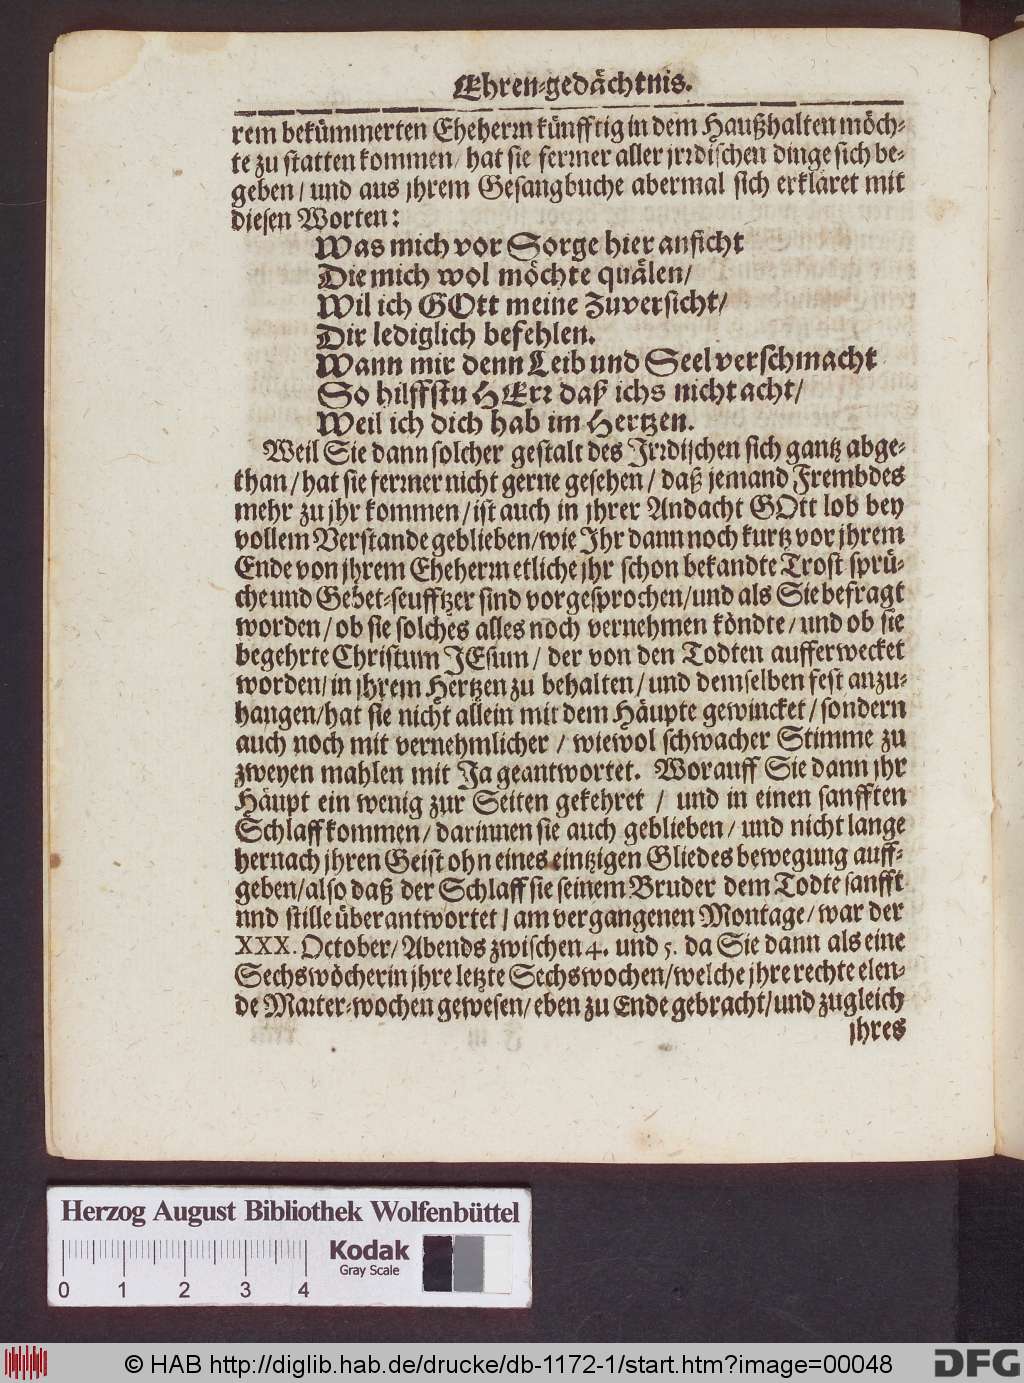 Ehren-gedächtnis.
rem bekümmerten Eheherrn künfftig in dem Haußhalten möch-
te zu statten kommen / hat sie ferrner aller jrrdischen dinge sich be-
geben / und aus jhrem Gesangbuche abermal sich erkläret mit
diesen Worten:
Was mich vor Sorge hier anficht
Die mich wol möchte quälen /
Wil ich GOtt meine Zuversicht /
Dir lediglich befehlen.
Wann mir denn Leib und Seel verschmacht
So hilffstu HErr daß ichs nicht acht /
Weil ich dich hab im Hertzen.
Weil Sie dann solcher gestalt des Jrrdischen sich gantz abge-
than / hat sie ferrner nicht gerne gesehen / daß jemand Frembdes
mehr zu jhr kommen / ist auch in jhrer Andacht GOtt lob bey
vollem Verstande geblieben / wie Jhr dann noch kurtz vor jhrem
Ende von jhrem Eheherrn etliche jhr schon bekandte Trost sprü-
che und Gebet-seufftzer sind vorgesprochen / und als Sie befragt
worden / ob sie solches alles noch vernehmen köndte / und ob sie
begehrte Christum JEsum / der von den Todten aufferwecket
worden / in jhrem Hertzen zu behalten / und demselben fest anzu-
hangen / hat sie nicht allein mit dem Häupte gewincket / sondern
auch noch mit vernehmlicher / wiewol schwacher Stimme zu
zweyen mahlen mit Ja geantwortet. Worauff Sie dann jhr
Häupt ein wenig zur Seiten gekehret / und in einen sanfften
Schlaff kommen / darinnen sie auch geblieben / und nicht lange
hernach jhren Geist ohn eines eintzigen Gliedes bewegung auff-
geben / also daß der Schlaff sie seinem Bruder dem Todte sanfft
und stille überantwortet / am vergangenen Montage / war der
XXX. October / Abends zwischen 4. und 5. da Sie dann als eine
Sechswöcherin jhre letzte Sechswochen / welche jhre rechte elen-
de Marter-wochen gewesen / eben zu Ende gebracht / und zugleich
jhres
Herzog August Bibliothek Wolfenbüttel
Kodak
Gray Scale
0 1 2 3 4
© HAB http://diglib.hab.de/drucke/db-1172-1/start.htm?image=00048
DFG